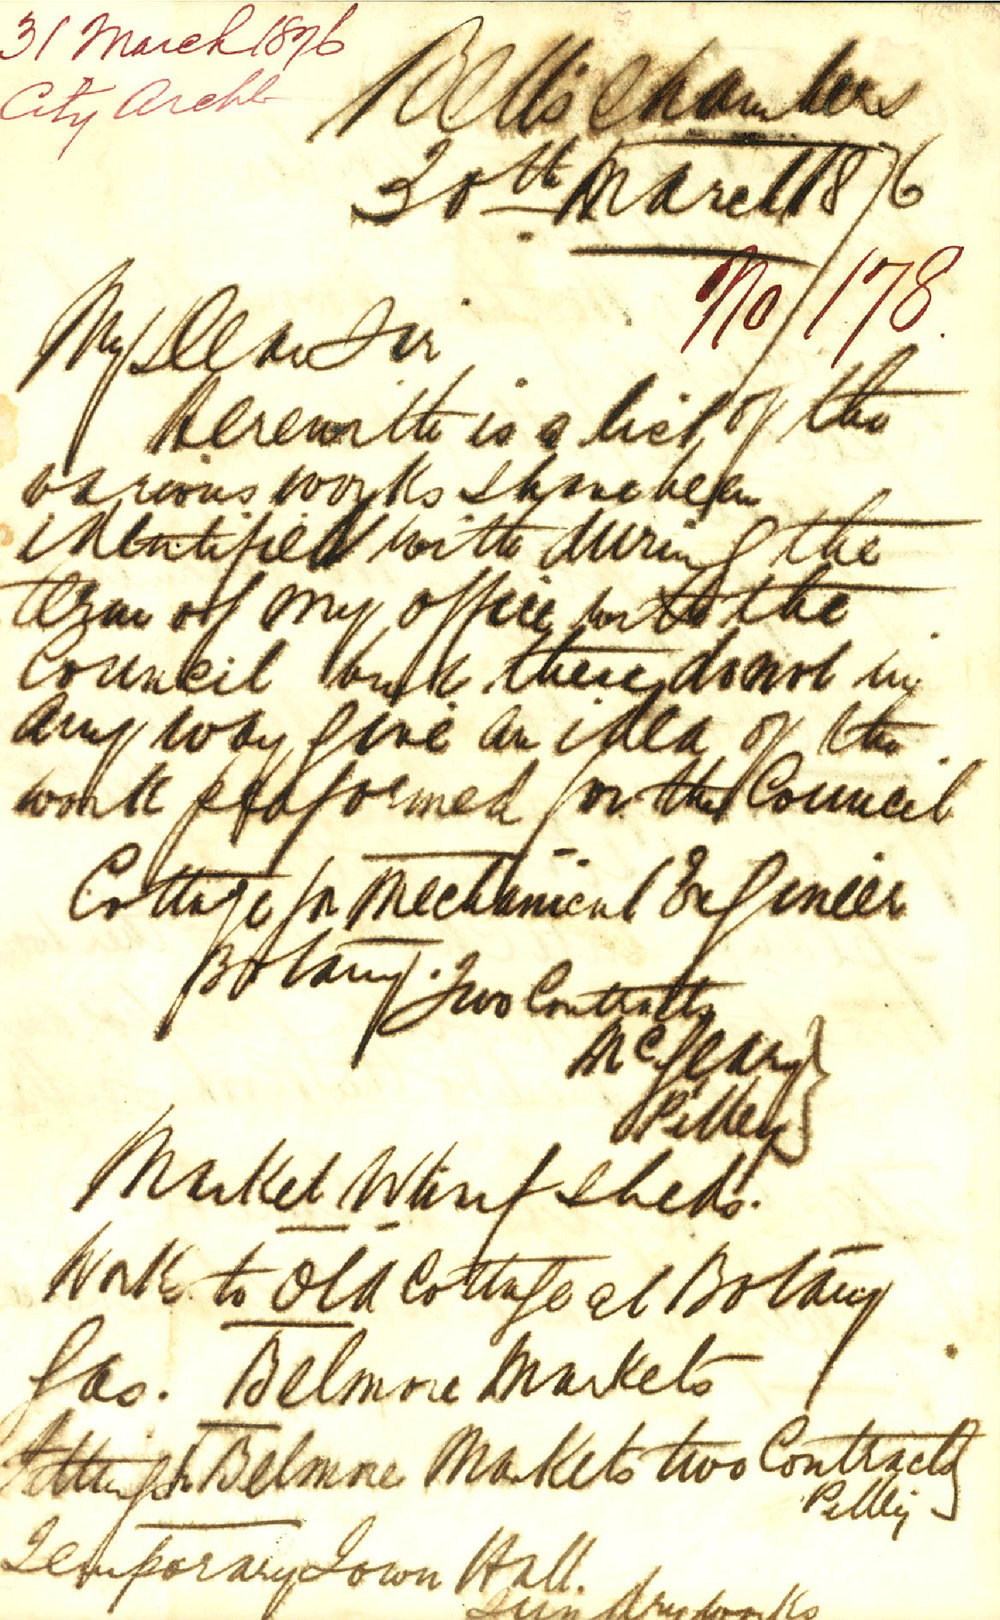 31 March 1876
City Archt
Bells Chambers
30th March 1876
No 178.
My Dear Sir
Herewith is a list of the
various works I have been
identified with during the
term of my office with the
Council and these do not in
any way give an idea of the
work performed for the Council
Cottage for Mechanical Engineer
Botany. Two Contracts
McGeary
Pilley
Market Wharf Sheds.
Work to Old Cottage at Botany
Gas. Belmore Markets
Fittings Belmore Markets two Contracts
Pilley
Temporary Town Hall.
Sundry works